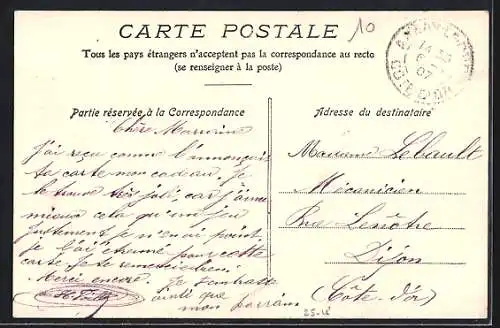 CARTE POSTALE
10
Tous les pays étrangers n'acceptent pas la correspondance au recto
(se renseigner à la poste)
14 30
6
07
COTE D'OR
Partie réservée à la Correspondance
Chère Marraine
J'ai reçu comme l'annonçait
ta carte mon cadeau. Je
le trouve très joli, car j'aime
mieux cela qu'un jeu
justement je n'en ai point
je l'ai étrenné par cette
carte. Je te remercie bien.
Merci encore. Je t'embrasse
ainsi que
mon parrain
Adresse du destinataire
Madame Lebault
Mécanicien
Rue Lenôtre
Dijon
Côte d'Or